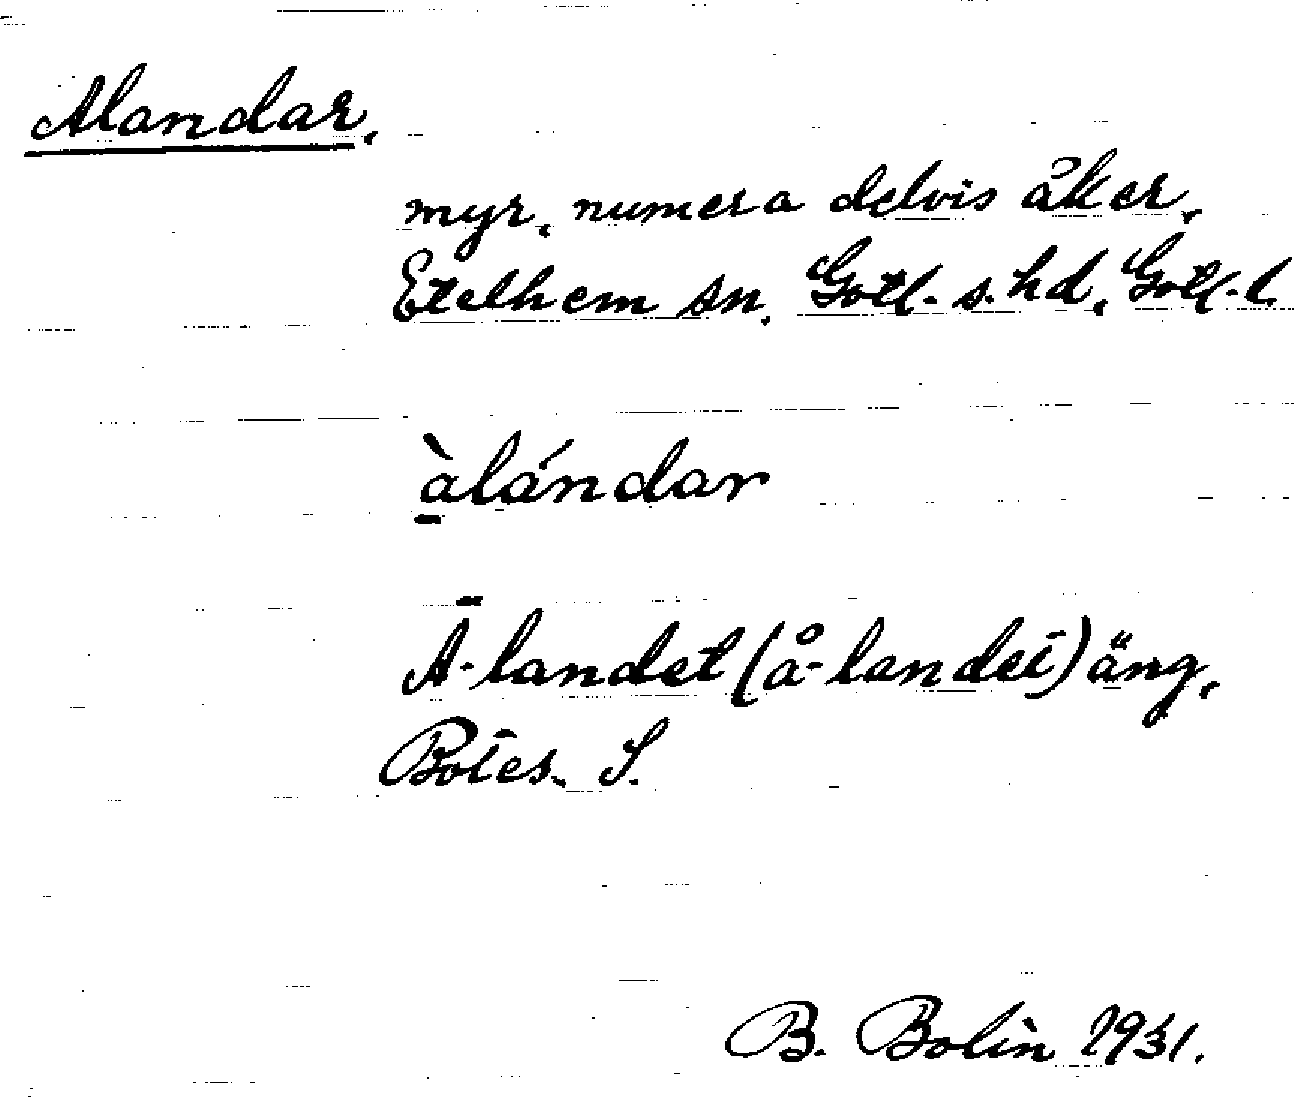 Alandar,
myr, numera delvis åker,
Etelhem sn. Gotl. s. hd, Gotl. l.
à̱lándar
Ā-landet (å-landet) äng,
Botes. S.
B. Bolin 1931.